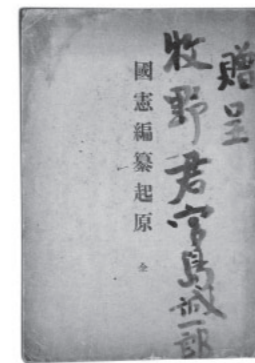 贈呈
牧野君 宮島誠一郎
國憲編纂起原 全